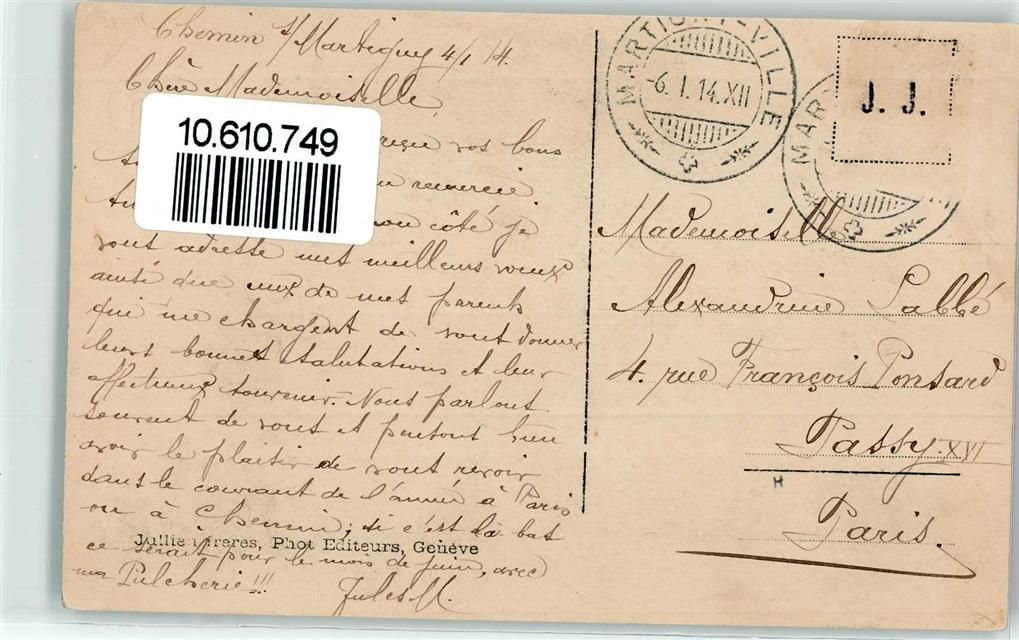 Chemin s/Martigny 4/1 14.
Chère Mademoiselle
10.610.749
reçu vos bons
remercie
mon côté je
vous adresse mes meilleurs voeux
ainsi que ceux de mes parents
qui me chargent de vous donner
leurs bonnes salutations et leur
affectueux souvenir. Nous parlons
souvent de vous et pensons bien
avoir le plaisir de vous revoir
dans le courant de l'année à Paris
ou à Chemin; si c'est là bas
Jullien freres, Phot Editeurs, Genève
ce serait pour le mois de juin, avec
ma Pulcherie!!!
Jules M.
MARTIGNY-VILLE
-6. I. 14. XII
MAR
J. J.
Mademoiselle
Alexandrine Labbé
4. rue François Ponsard
Passy. XVI
H
Paris.